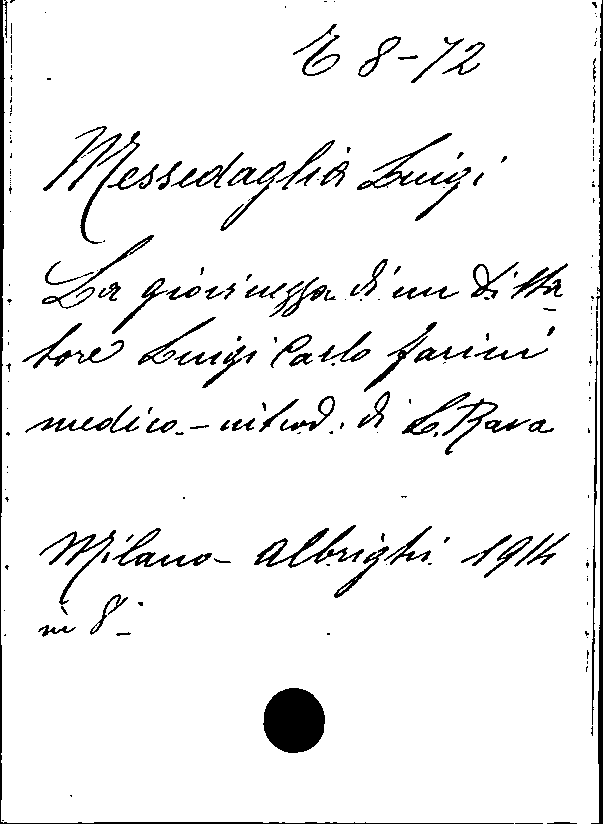 E 8-72
Messedaglia Luigi
La giovinezza di un ditta-
tore Luigi Carlo farini
medico - introd. di L. Rava
Milano - Albrighi 1914
in 8° -